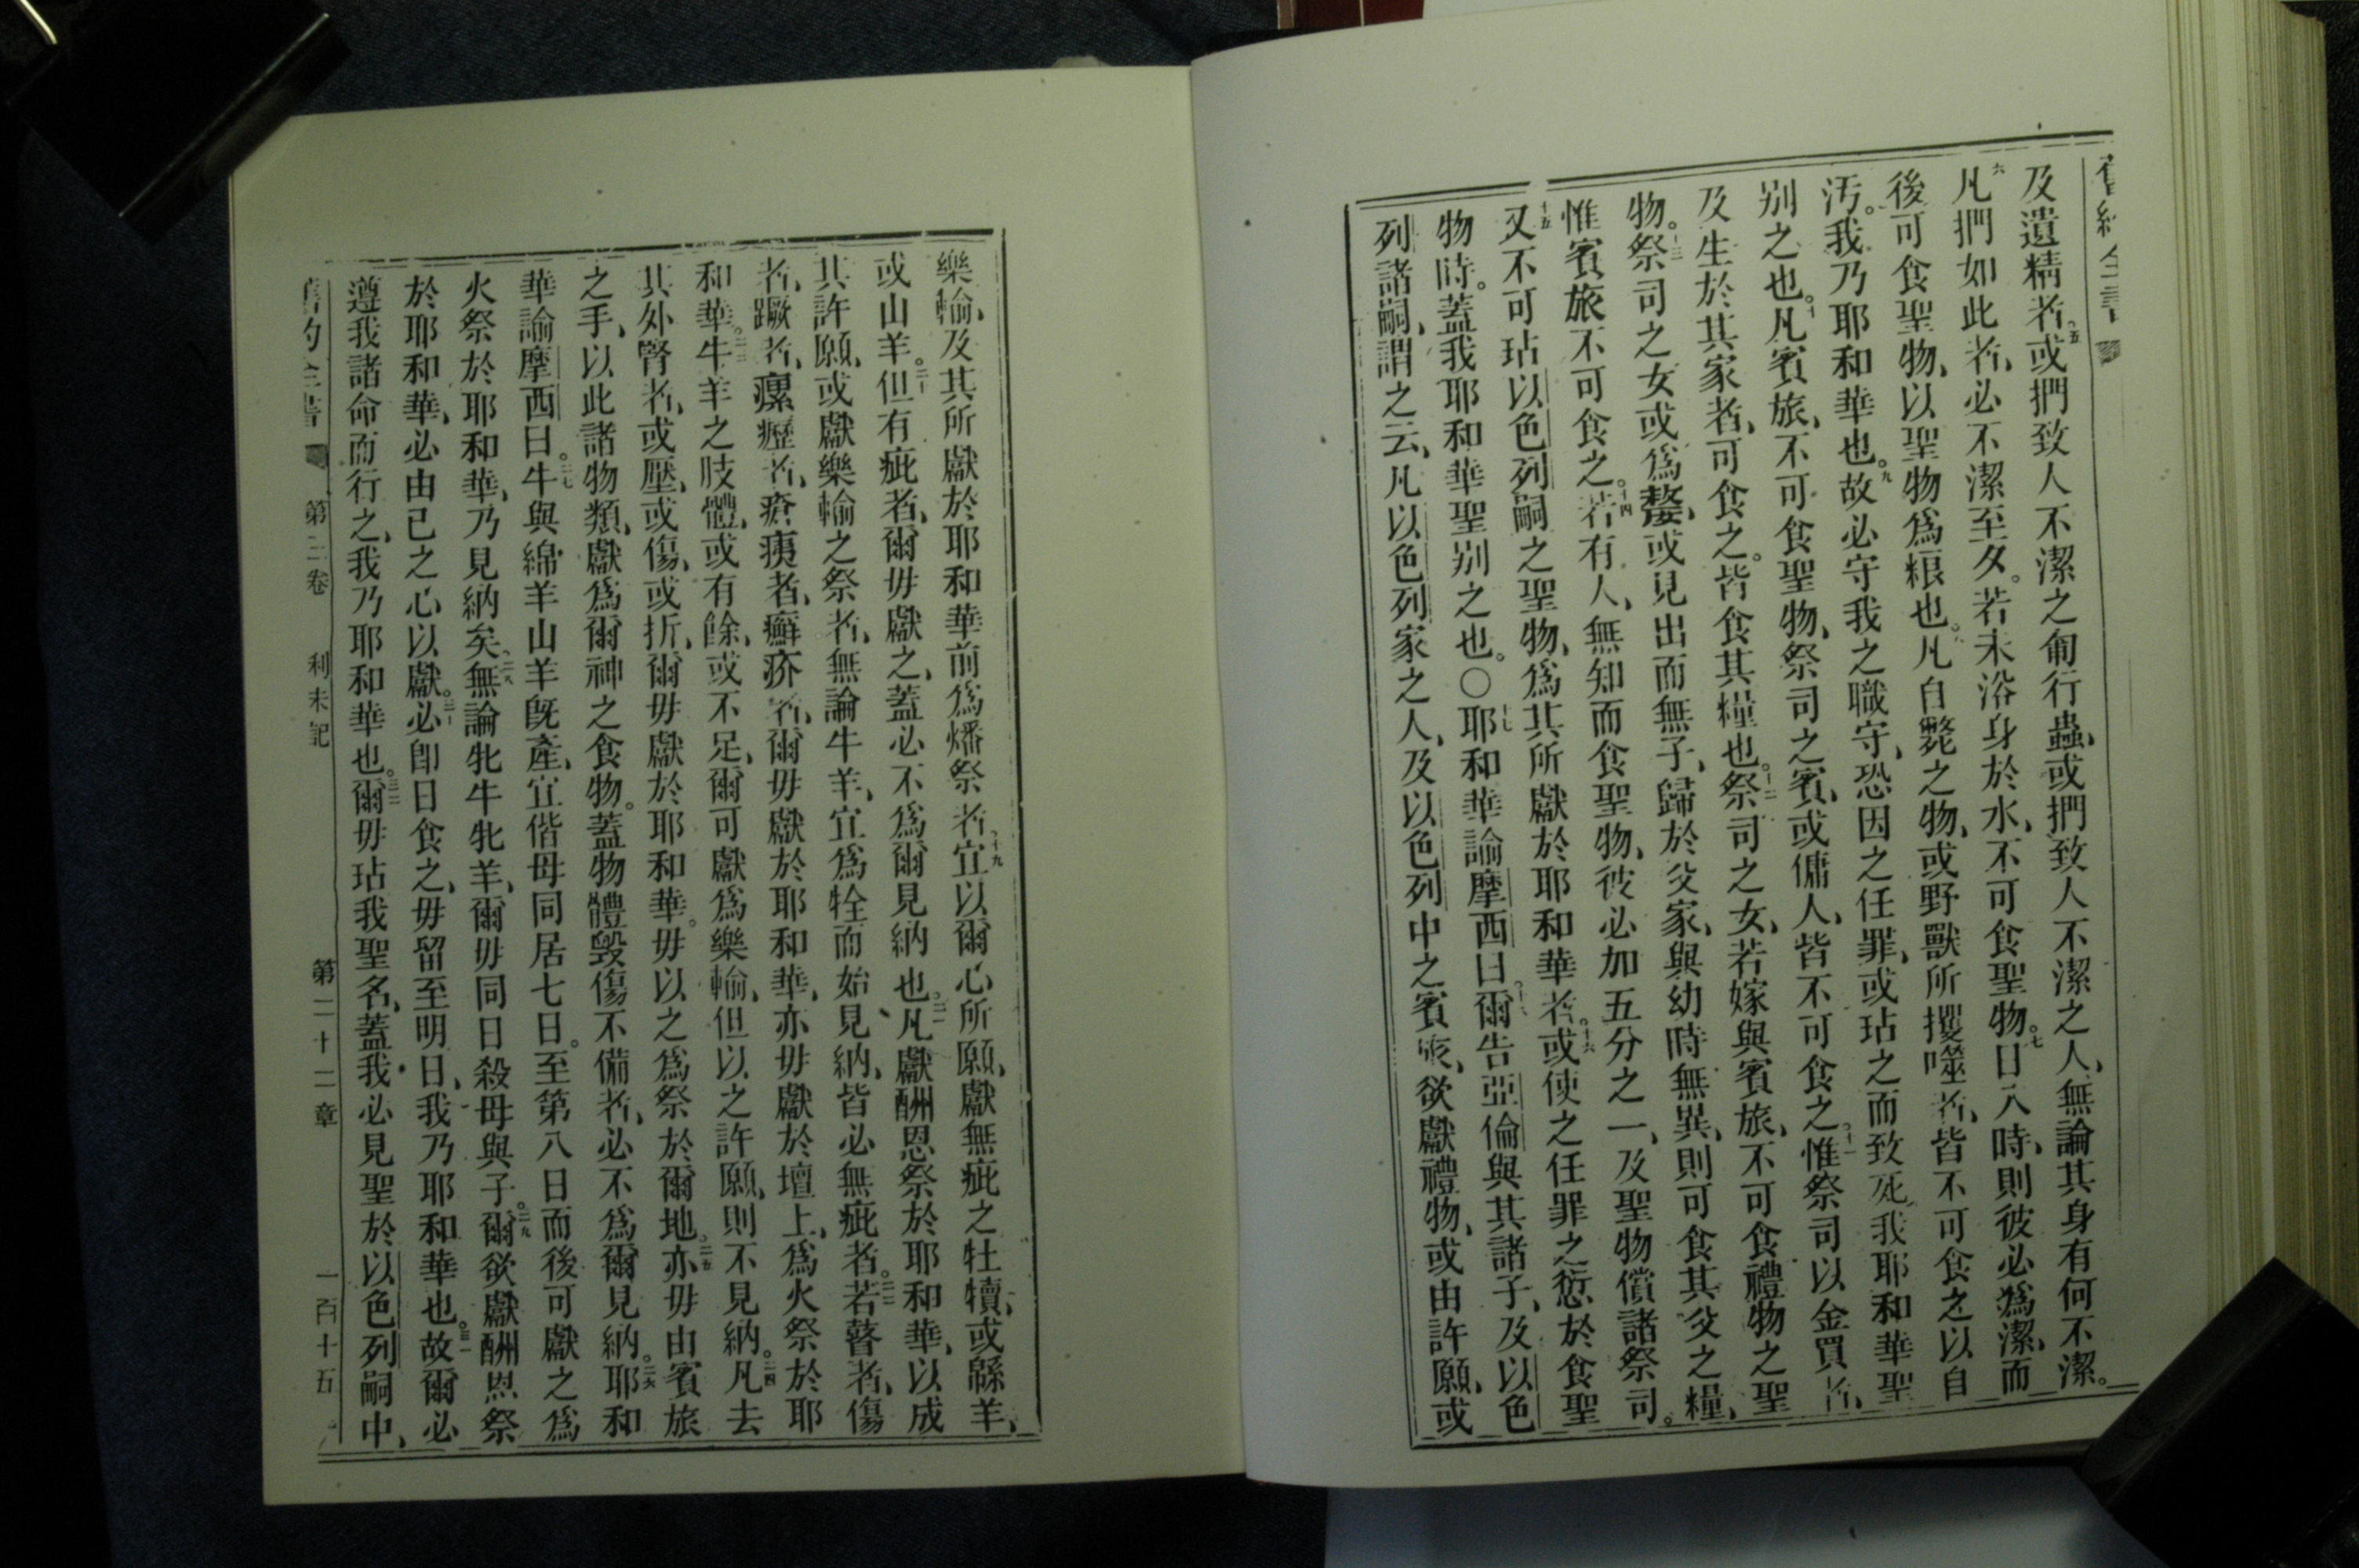 舊約全書
及遺精者。五或捫致人不潔之匍行蟲、或捫致人不潔之人、無論其身有何不潔。
六凡捫如此者、必不潔至夕。若未浴身於水、不可食聖物。七日入時、則彼必爲潔、而
後可食聖物、以聖物爲粮也。八凡自斃之物、或野獸所攫噬者、皆不可食之以自
汚。我乃耶和華也。九故必守我之職守、恐因之任罪、或玷之而致死、我耶和華聖
别之也。十凡賓旅、不可食聖物、祭司之賓、或傭人、皆不可食之。十一惟祭司以金買者、
及生於其家者、可食之。皆食其糧也。十二祭司之女、若嫁與賓旅、不可食禮物之聖
物。十三祭司之女或爲嫠、或見出而無子、歸於父家、與幼時無異、則可食其父之糧、
惟賓旅不可食之。十四若有人、無知而食聖物、彼必加五分之一、及聖物償諸祭司。
十五又不可玷以色列嗣之聖物、爲其所獻於耶和華者。十六或使之任罪之愆於食聖
物時。蓋我耶和華聖别之也。〇十七耶和華諭摩西曰。十八爾告亞倫與其諸子、及以色
列諸嗣、謂之云、凡以色列家之人、及以色列中之賓旅、欲獻禮物、或由許願、或
樂輸、及其所獻於耶和華前爲燔祭者。十九宜以爾心所願、獻無疵之牡犢、或緜羊、
或山羊。二十但有疵者、爾毋獻之、蓋必不爲爾見納也。二一凡獻酬恩祭於耶和華、以成
其許願、或獻樂輸之祭者、無論牛羊、宜爲牷而始見納、皆必無疵者。二二若瞽者、傷
者、蹶者、瘰癧者、瘡痍者、癬疥者、爾毋獻於耶和華、亦毋獻於壇上、爲火祭於耶
和華。二三牛羊之肢體、或有餘、或不足、爾可獻爲樂輸、但以之許願、則不見納。二四凡去
其外腎者、或壓、或傷、或折、爾毋獻於耶和華。毋以之爲祭於爾地。二五亦毋由賓旅
之手、以此諸物類、獻爲爾神之食物。蓋物體毀傷不備者、必不爲爾見納。二六耶和
華諭摩西曰。二七牛與綿羊山羊旣產、宜偕母同居七日。至第八日而後可獻之爲
火祭於耶和華、乃見納矣。二八無論牝牛牝羊、爾毋同日殺母與子。二九爾欲獻酬恩祭
於耶和華、必由己之心以獻。三十必卽日食之、毋留至明日、我乃耶和華也。三一故爾必
遵我諸命而行之、我乃耶和華也。三二爾毋玷我聖名、蓋我必見聖於以色列嗣中、
舊約全書 第三卷 利未記 第二十二章 一百十五